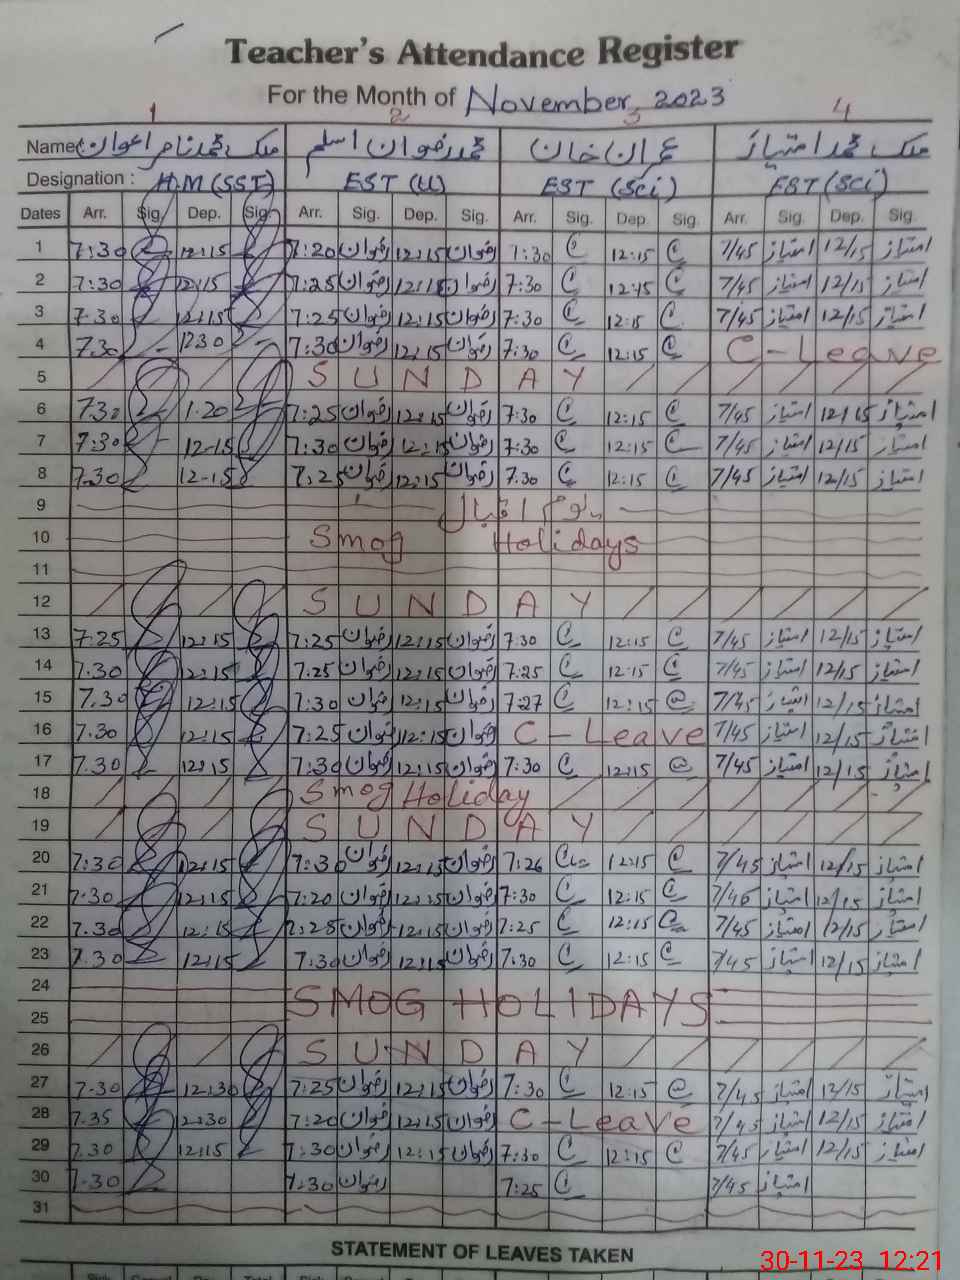 Teacher's Attendance Register
For the Month of November, 2023
1 2 3 4
Name: ملک محمد ناصر اعوان محمد رضوان اسلم عمران خان ملک محمد امتیاز
Designation: H.M (SST) EST (U) EST (Sci) EST (Sci)
Dates Arr. Sig. Dep. Sig. Arr. Sig. Dep. Sig. Arr. Sig. Dep. Sig. Arr Sig. Dep. Sig.
1 7:30 12:15 7:20 رضوان 12:15 رضوان 7:30 12:15 7/45 امتیاز 12/15 امتیاز
2 7:30 12:15 7:25 رضوان 12:15 رضوان 7:30 12:15 7/45 امتیاز 12/15 امتیاز
3 7.30 12:15 7:25 رضوان 12:15 رضوان 7:30 12:15 7/45 امتیاز 12/15 امتیاز
4 7.30 1230 7:30 رضوان 12:15 رضوان 7:30 12:15 C-Leave
5 SUNDAY
6 7.30 1.20 7:25 رضوان 12:15 رضوان 7:30 12:15 7/45 امتیاز 12/15 امتیاز
7 7:30 12-15 7:30 رضوان 12:15 رضوان 7:30 12:15 7/45 امتیاز 12/15 امتیاز
8 7.30 12-15 7:25 رضوان 12:15 رضوان 7.30 12:15 7/45 امتیاز 12/15 امتیاز
9 یوم اقبال
10 Smog Holidays
11
12 SUNDAY
13 7.25 12:15 7:25 رضوان 12:15 رضوان 7:30 12:15 7/45 امتیاز 12/15 امتیاز
14 7.30 12:15 7.25 رضوان 12:15 رضوان 7:25 12:15 7/45 امتیاز 12/15 امتیاز
15 7.30 12:15 7:30 رضوان 12:15 رضوان 7:27 12:15 7/45 امتیاز 12/15 امتیاز
16 7.30 12:15 7:25 رضوان 12:15 رضوان C-Leave 7/45 امتیاز 12/15 امتیاز
17 7.30 12:15 7:30 رضوان 12:15 رضوان 7:30 12:15 7/45 امتیاز 12/15 امتیاز
18 Smog Holiday
19 SUNDAY
20 7:30 12:15 7:30 رضوان 12:15 رضوان 7:26 12:15 7/45 امتیاز 12/15 امتیاز
21 7.30 12:15 7:20 رضوان 12:15 رضوان 7:30 12:15 7/45 امتیاز 12/15 امتیاز
22 7.30 12:15 7:25 رضوان 12:15 رضوان 7:25 12:15 7/45 امتیاز 12/15 امتیاز
23 7.30 12:15 7:30 رضوان 12:15 رضوان 7:30 12:15 7/45 امتیاز 12/15 امتیاز
24
SMOG HOLIDAYS
25
26 SUNDAY
27 7.30 12:30 7:25 رضوان 12:15 رضوان 7:30 12:15 7/45 امتیاز 12/15 امتیاز
28 7.35 12:30 7:20 رضوان 12:15 رضوان C-Leave 7/45 امتیاز 12/15 امتیاز
29 7.30 12:15 7:30 رضوان 12:15 رضوان 7:30 12:15 7/45 امتیاز 12/15 امتیاز
30 7.30 7:30 رضوان 7:25 7/45 امتیاز
31
STATEMENT OF LEAVES TAKEN
30-11-23 12:21